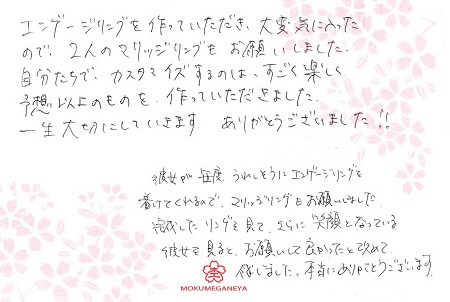 エンゲージリングを作っていただき、大変気に入った
ので、2人のマリッジリングも お願いしました.
自分たちで、カスタマイズするのは、すごく楽しく
予想以上のものを、作っていただきました.
一生大切にしていきます ありがとうございました!!
彼女が毎度、うれしそうにエンゲージリングを
着けてくれるので、マリッジリングをお願いしました
完成したリングを見て、さらに笑顔となっている
彼女を見ると、お願いして良かったと改めて
しました。本当にありがとうございます.
MOKUMEGANEYA